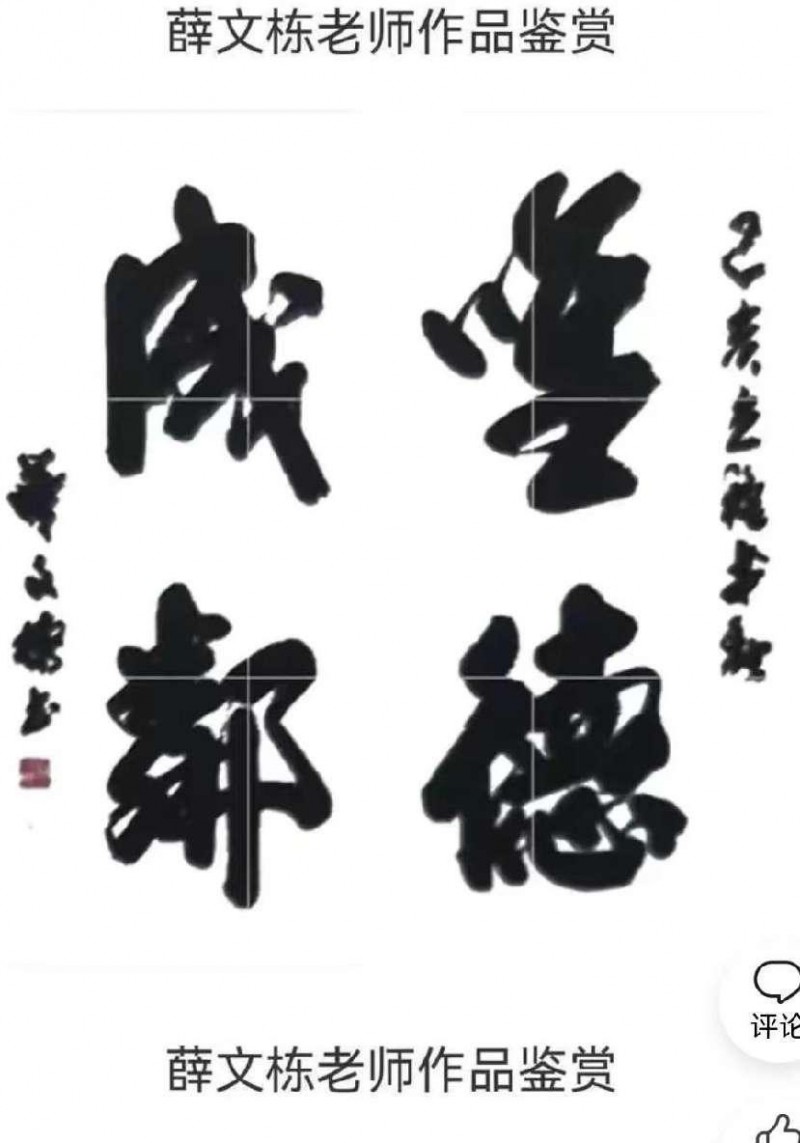 薛文栋老师作品鉴赏
己亥
德
成鄰
薛文栋书
薛文栋老师作品鉴赏
评论